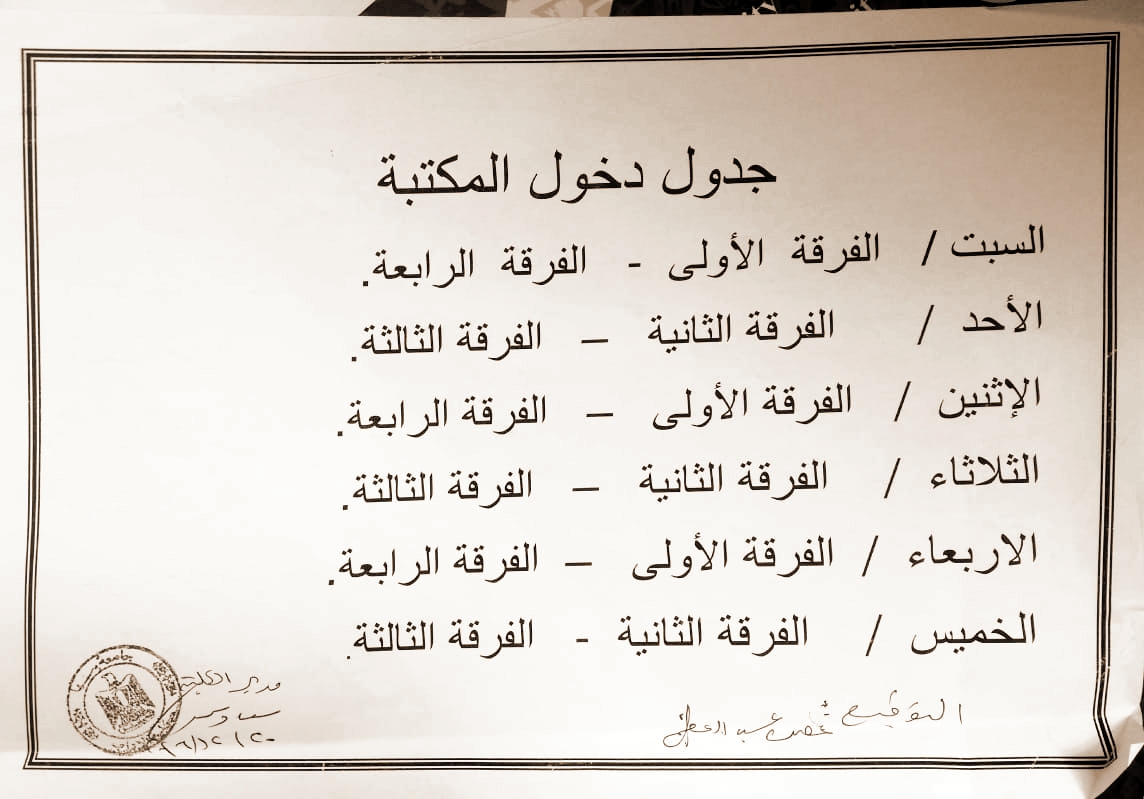 جدول دخول المكتبة
السبت / الفرقة الأولى - الفرقة الرابعة.
الأحد / الفرقة الثانية – الفرقة الثالثة.
الإثنين / الفرقة الأولى – الفرقة الرابعة.
الثلاثاء / الفرقة الثانية – الفرقة الثالثة.
الاربعاء / الفرقة الأولى – الفرقة الرابعة.
الخميس / الفرقة الثانية - الفرقة الثالثة.
التوقيع
مدير الكلية
جامعة